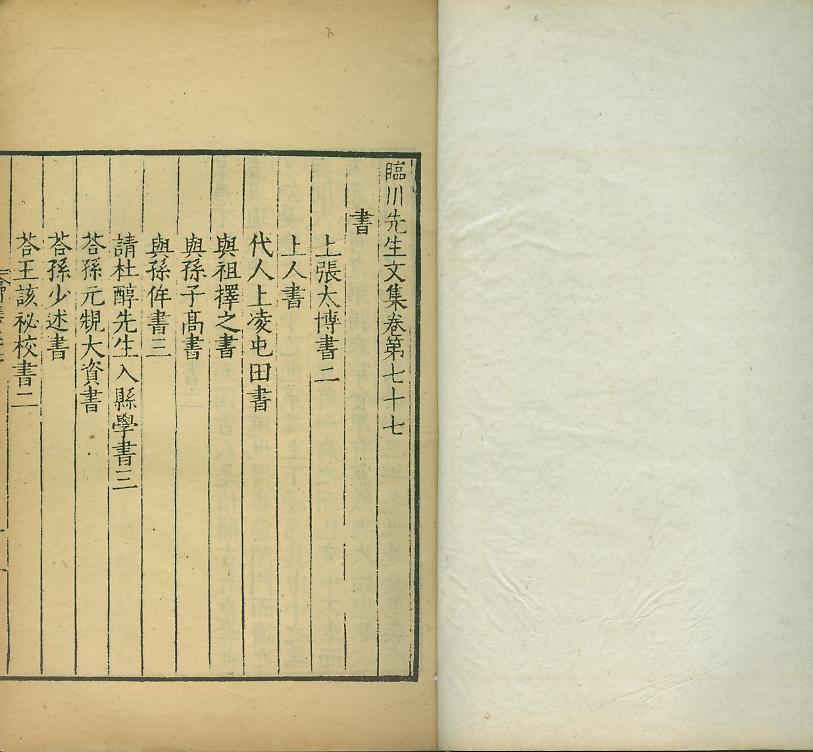 臨川先生文集卷第七十七
書
上張太博書二
上人書
代人上凌屯田書
與祖擇之書
與孫子高書
與孫侔書三
請杜醇先生入縣學書三
荅孫元䂓大資書
荅孫少述書
荅王該祕校書二